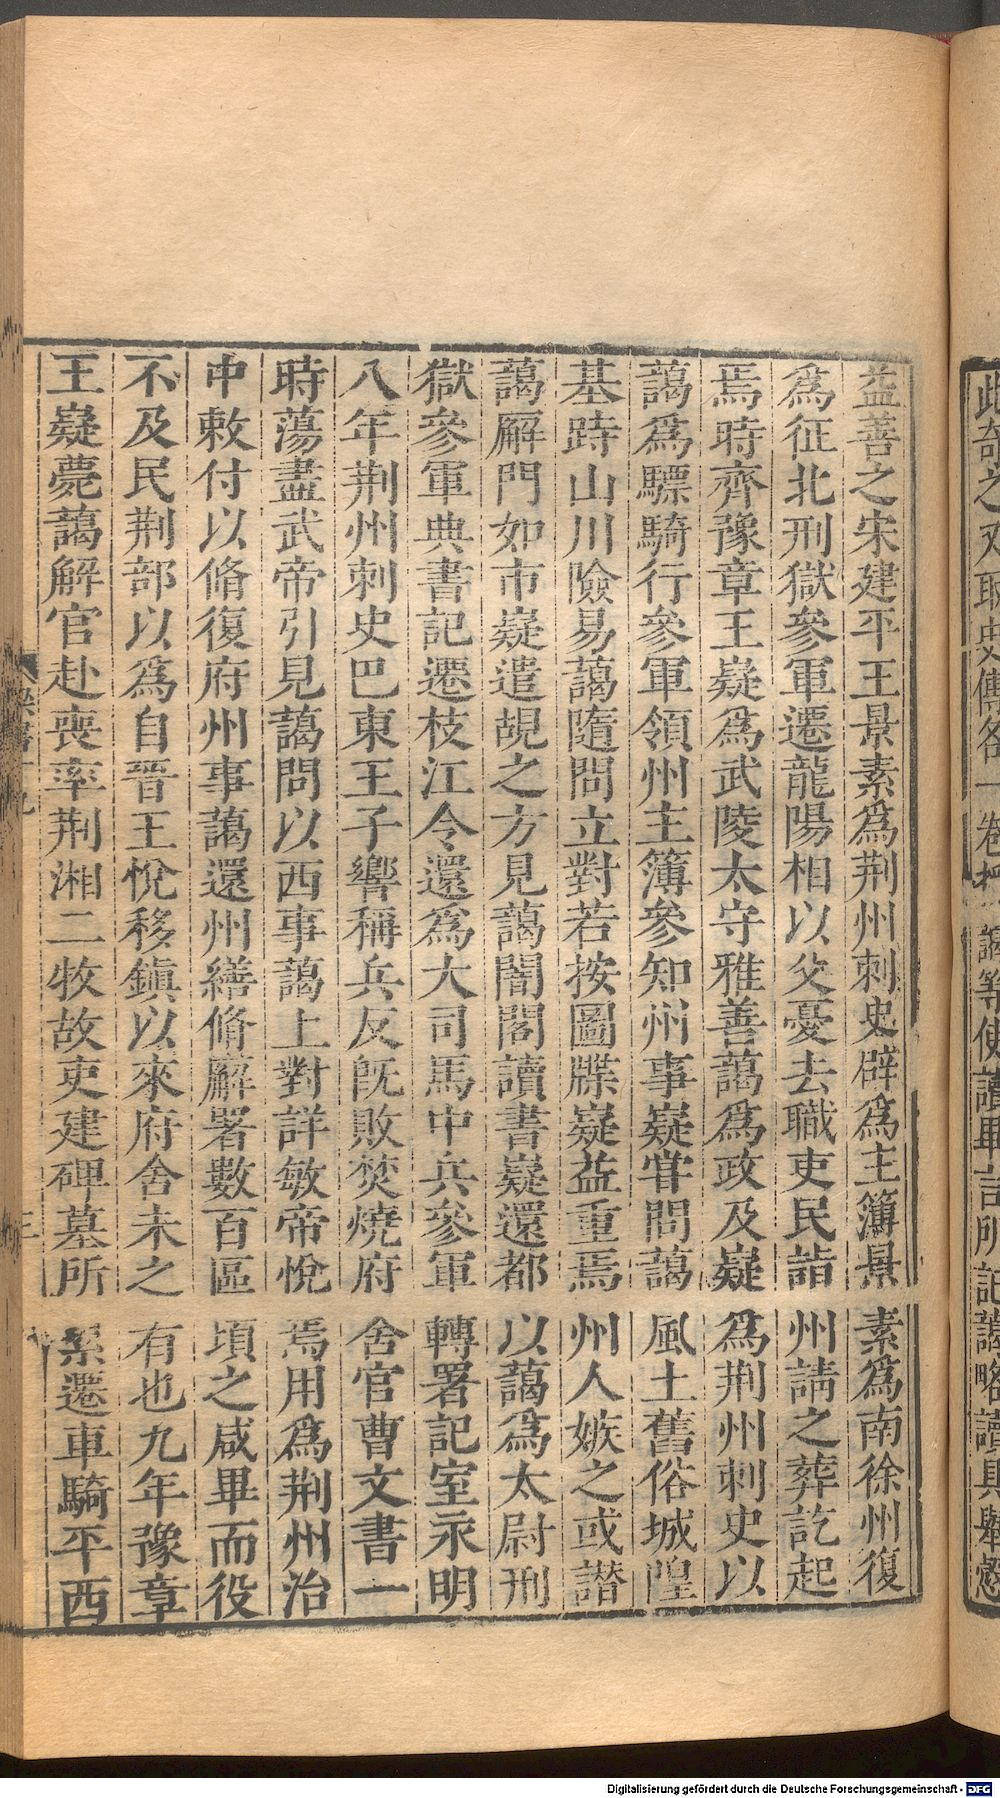 此奇之又取史傳各一卷授藹等使讀畢言所記藹略讀具舉慤
益善之宋建平王景素爲荆州刺史辟爲主簿景素爲南徐州復
爲征北刑獄參軍遷龍陽相以父憂去職吏民詣州請之葬訖起
焉時齊豫章王嶷爲武陵太守雅善藹爲政及嶷爲荆州刺史以
藹爲驃騎行參軍領州主簿參知州事嶷甞問藹風土舊俗城隍
基跱山川險易藹隨問立對若按圖牒嶷益重焉州人嫉之或譖
藹廨門如市嶷遣覘之方見藹閤閣讀書嶷還都以藹爲太尉刑
獄參軍典書記遷枝江令還爲大司馬中兵參軍轉署記室永明
八年荆州刺史巴東王子響稱兵反既敗焚燒府舍官曹文書一
時蕩盡武帝引見藹問以西事藹上對詳敏帝悅焉用爲荆州治
中敕付以脩復府州事藹還州繕脩廨署數百區頃之咸畢而役
不及民荆部以爲自晉王悅移鎮以來府舍未之有也九年豫章
王嶷薨藹解官赴喪率荆湘二牧故吏建碑墓所累遷車騎平西
梁書十九
三
Digitalisierung gefördert durch die Deutsche Forschungsgemeinschaft - DFG